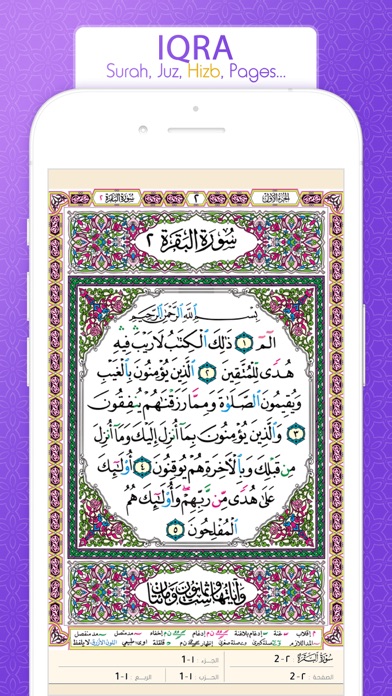 IQRA
Surah, Juz, Hizb, Pages...
سُورَةُ البَقَرَة ٢
٢
الجُزءُ الأوّل
سُورَةُ البَقَرَةِ ٢
بِسْمِ ٱللَّهِ ٱلرَّحْمَٰنِ ٱلرَّحِيمِ
الٓمٓ ١ ذَٰلِكَ ٱلْكِتَٰبُ لَا رَيْبَ ۛ فِيهِ ۛ
هُدًى لِّلْمُتَّقِينَ ٢ ٱلَّذِينَ يُؤْمِنُونَ بِٱلْغَيْبِ
وَيُقِيمُونَ ٱلصَّلَوٰةَ وَمِمَّا رَزَقْنَٰهُمْ يُنفِقُونَ
٣ وَٱلَّذِينَ يُؤْمِنُونَ بِمَآ أُنزِلَ إِلَيْكَ وَمَآ أُنزِلَ
مِن قَبْلِكَ وَبِٱلْأَخِرَةِ هُمْ يُوقِنُونَ ٤ أُو۟لَٰٓئِكَ
عَلَىٰ هُدًى مِّن رَّبِّهِمْ ۖ وَأُو۟لَٰٓئِكَ هُمُ
ٱلْمُفْلِحُونَ ٥
وَآيَاتُهَا سِتٌّ وَثَمَانُونَ وَمِائَتَانِ
سُورَةُ البَقَرَةِ ٢-2
الجزء : ١-1
الصفحة : ٢-2
الحزب : ١-1
الربع : ١-1